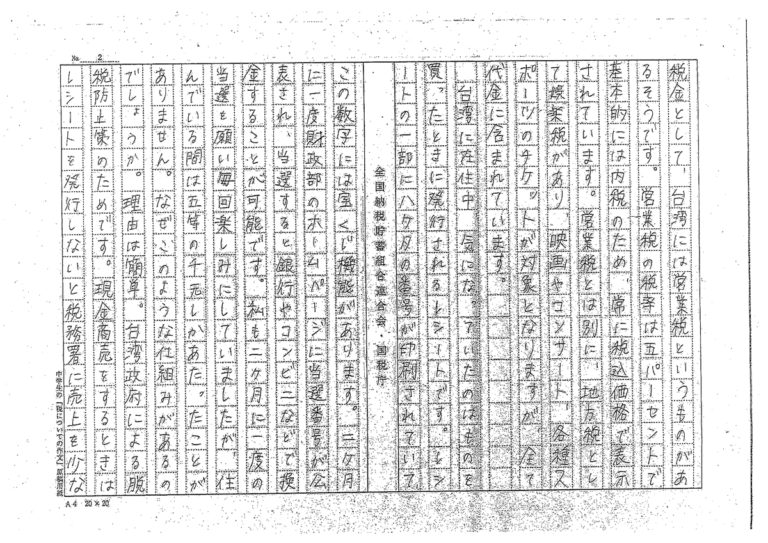 税金として、台湾には営業税というものがあ
るそうです。営業税の税率は五パーセントで
基本的には内税のため、常に税込価格で表示
されています。営業税とは別に、地方税とし
て娯楽税があり、映画やコンサート、各種ス
ポーツのチケットが対象となりますが、全て
代金に含まれています。
台湾に在住中、気になっていたのはものを
買ったときに発行されるレシートです。レシ
ートの一部にハケタの番号が印刷されていて
全国納税貯蓄組合連合会・国税庁
この数字には宝くじ機能があります。二ヶ月
に一度財政部のホームページに当選番号が公
表され、当選すると銀行やコンビニなどで換
金することが可能です。私も二ヶ月に一度の
当選を願い毎回楽しみにしていましたが、住
んでいる間は五等の千元しかあたったことが
ありません。なぜこのような仕組みがあるの
でしょうか。理由は簡単。台湾政府による脱
税防止策のためです。現金商売をするときは
レシートを発行しないと税務署に売上を少な
No. 2
中学生の「税についての作文」原稿用紙
A4 20×20